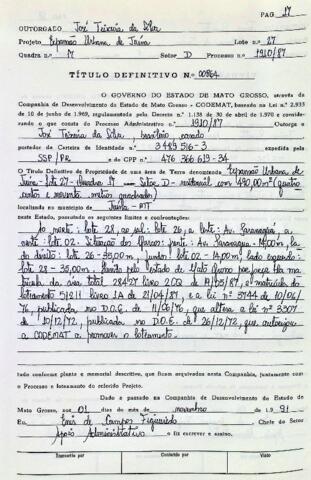 PAG 17
OUTORGADO José Teixeira da Silva
Projeto Expansão Urbana de Juína Lote n.º 27
Quadra n.º M Setor D Processo 1910/87
TÍTULO DEFINITIVO N.º 00864
O GOVERNO DO ESTADO DE MATO GROSSO, através da
Companhia de Desenvolvimento do Estado de Mato Grosso - CODEMAT, baseado na Lei n.º 2.933
de 10 de junho de 1969, regulamentada pelo Decreto n.º 1.138 de 30 de abril de 1970 e conside-
rando o que consta do Processo Administrativo n.º 1910/87 Outorga a
José Teixeira da Silva brasileiro casado
portador da Carteira de Identidade n.º 3 489 516-3 expedida pela
SSP/PR e do CPF n.º 476 366 619-34
O Título Definitivo de Propriedade de uma área de Terra denominada Expansão Urbana de
Juína - lote 27 - Quadra M - Setor D - residencial com 490,00 m² (quatro
centos e noventa metros quadrados)
localizada no município de Juína - MT
neste Estado, passando os seguintes limites e confrontações:
Ao norte: lote 28, ao sul: lote 26, a leste: Av. Paranaguá, a
oeste: lote 02 - Situação dos Marcos: frente: Av. Paranaguá - 14,00m, la
do direito: lote 26 - 35,00m, fundos: lote 02 - 14,00m, lado esquerdo:
lote 28 - 35,00m.
trícula da área total 28427 livro 2CQ de
loteamento 51211 livro 1A de 21/04/87, e a lei nº 3744 de 10/06/
76, publicada no D.O.E. de 11/06/76, que altera a lei nº 3307
de 10/12/72, publicada no D.O.E. de 26/12/72, que autoriza
a CODEMAT a promover o loteamento.
tudo conforme planta e memorial descritivo, que ficam arquivados nesta Companhia, juntamente com
o Processo e loteamento do referido Projeto.
Dado e passado na Companhia de Desenvolvimento do Estado de
Mato Grosso, aos 01 dias do mês de novembro de 19 91
Eu, de Campos Figueiredo Chefe do Setor
Apoio Administrativo o fiz escrever e assino.
Transcrito por Conferido por Visto